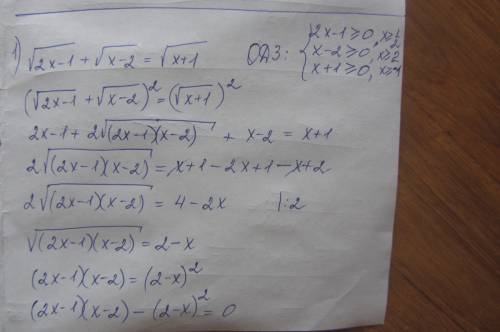 1) √(2x-1) + √(x-2) = √(x+1)
ОДЗ: { 2x-1≥0, x≥1/2
x-2≥0, x≥2
x+1≥0, x≥-1
(√(2x-1) + √(x-2))² = (√(x+1))²
2x-1 + 2√((2x-1)(x-2)) + x-2 = x+1
2√((2x-1)(x-2)) = x+1-2x+1-x+2
2√((2x-1)(x-2)) = 4-2x |:2
√((2x-1)(x-2)) = 2-x
(2x-1)(x-2) = (2-x)²
(2x-1)(x-2) - (2-x)² = 0